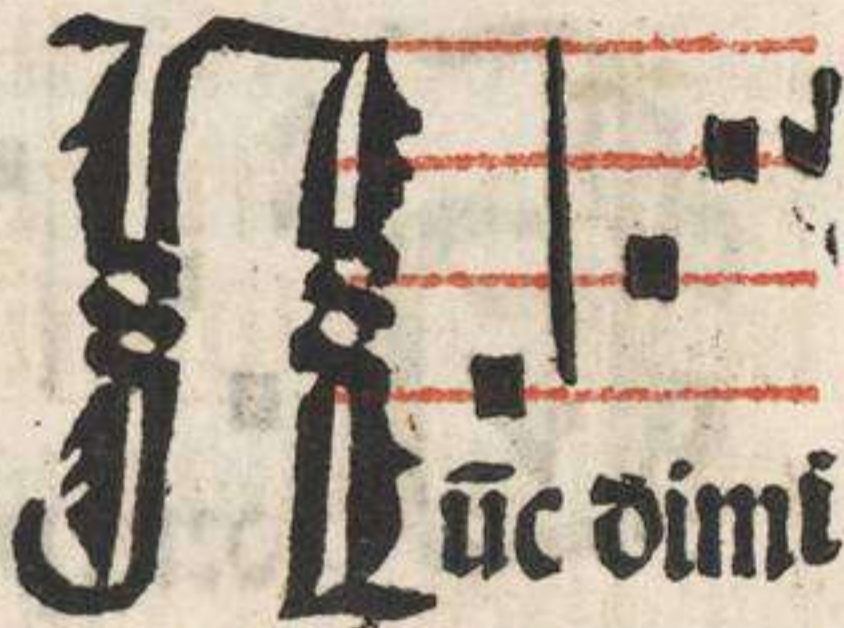 Nūc dimi